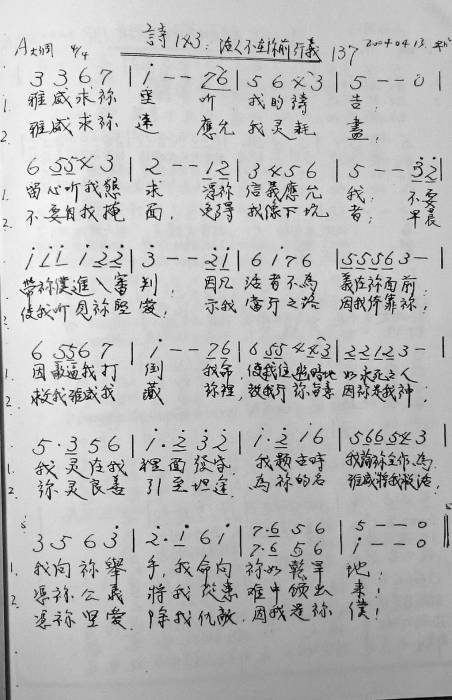 詩143：活人不在你前行義 137
A大調 4/4 2004.04.13.
3 3 6 7 | i - - 7 6 | 5 6 4 3 | 5 - - 0 |
1. 雅威求祢垂 听 我的禱告，
2. 雅威求祢速 應允我灵耗盡，
6 5 5 4 3 | 2 - - 1 2 | 3 4 5 6 | 5 - - 3 2 |
1. 留心听我懇求 憑祢信義應允我，不要
2. 不要自我掩面，免得我像下坑者，早晨
i i i i 2 2 | 3 - - 2 i | 6 i 7 6 | 5 5 5 6 3 - |
帶祢僕進入審判，因凡活者不為義在祢面前，
使我听見祢堅愛，示我當行之路因我倚靠祢，
6 5 5 6 7 | i - - 7 6 | 6 5 5 4 4 3 | 2 2 1 2 3 - |
因敵逼我打倒我命，使我住幽暗地如永死之人
救我雅威我藏祢裡，教我行祢旨意因祢是我神，
5 · 3 5 6 | i · 2 3 2 | i · 2 i 6 | 5 6 6 5 4 3 |
1. 我灵在我裡面發昏，我題古時我論祢工作為，
2. 祢灵良善引至坦途，為祢的名雅威將我救活，
3 5 6 3 | 2 · i 6 i | 7 · 6 5 6 | 5 - - 0
7 · 6 5 6 | i - - 0
1. 我向祢舉手，我命向祢如乾旱地！
2. 憑祢公義將我從患难中领出來！
憑祢堅愛除我仇敵，因我是祢僕！